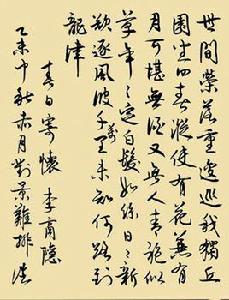 世間榮落重逡巡我獨丘
園坐四春縱使有花兼有
月可堪無酒又無人青袍似
草年々定白髮如絲日々新
欲逐風波千萬里未知何路到
龍津
春日寄懷 李商隱
乙未中秋 月對景難排